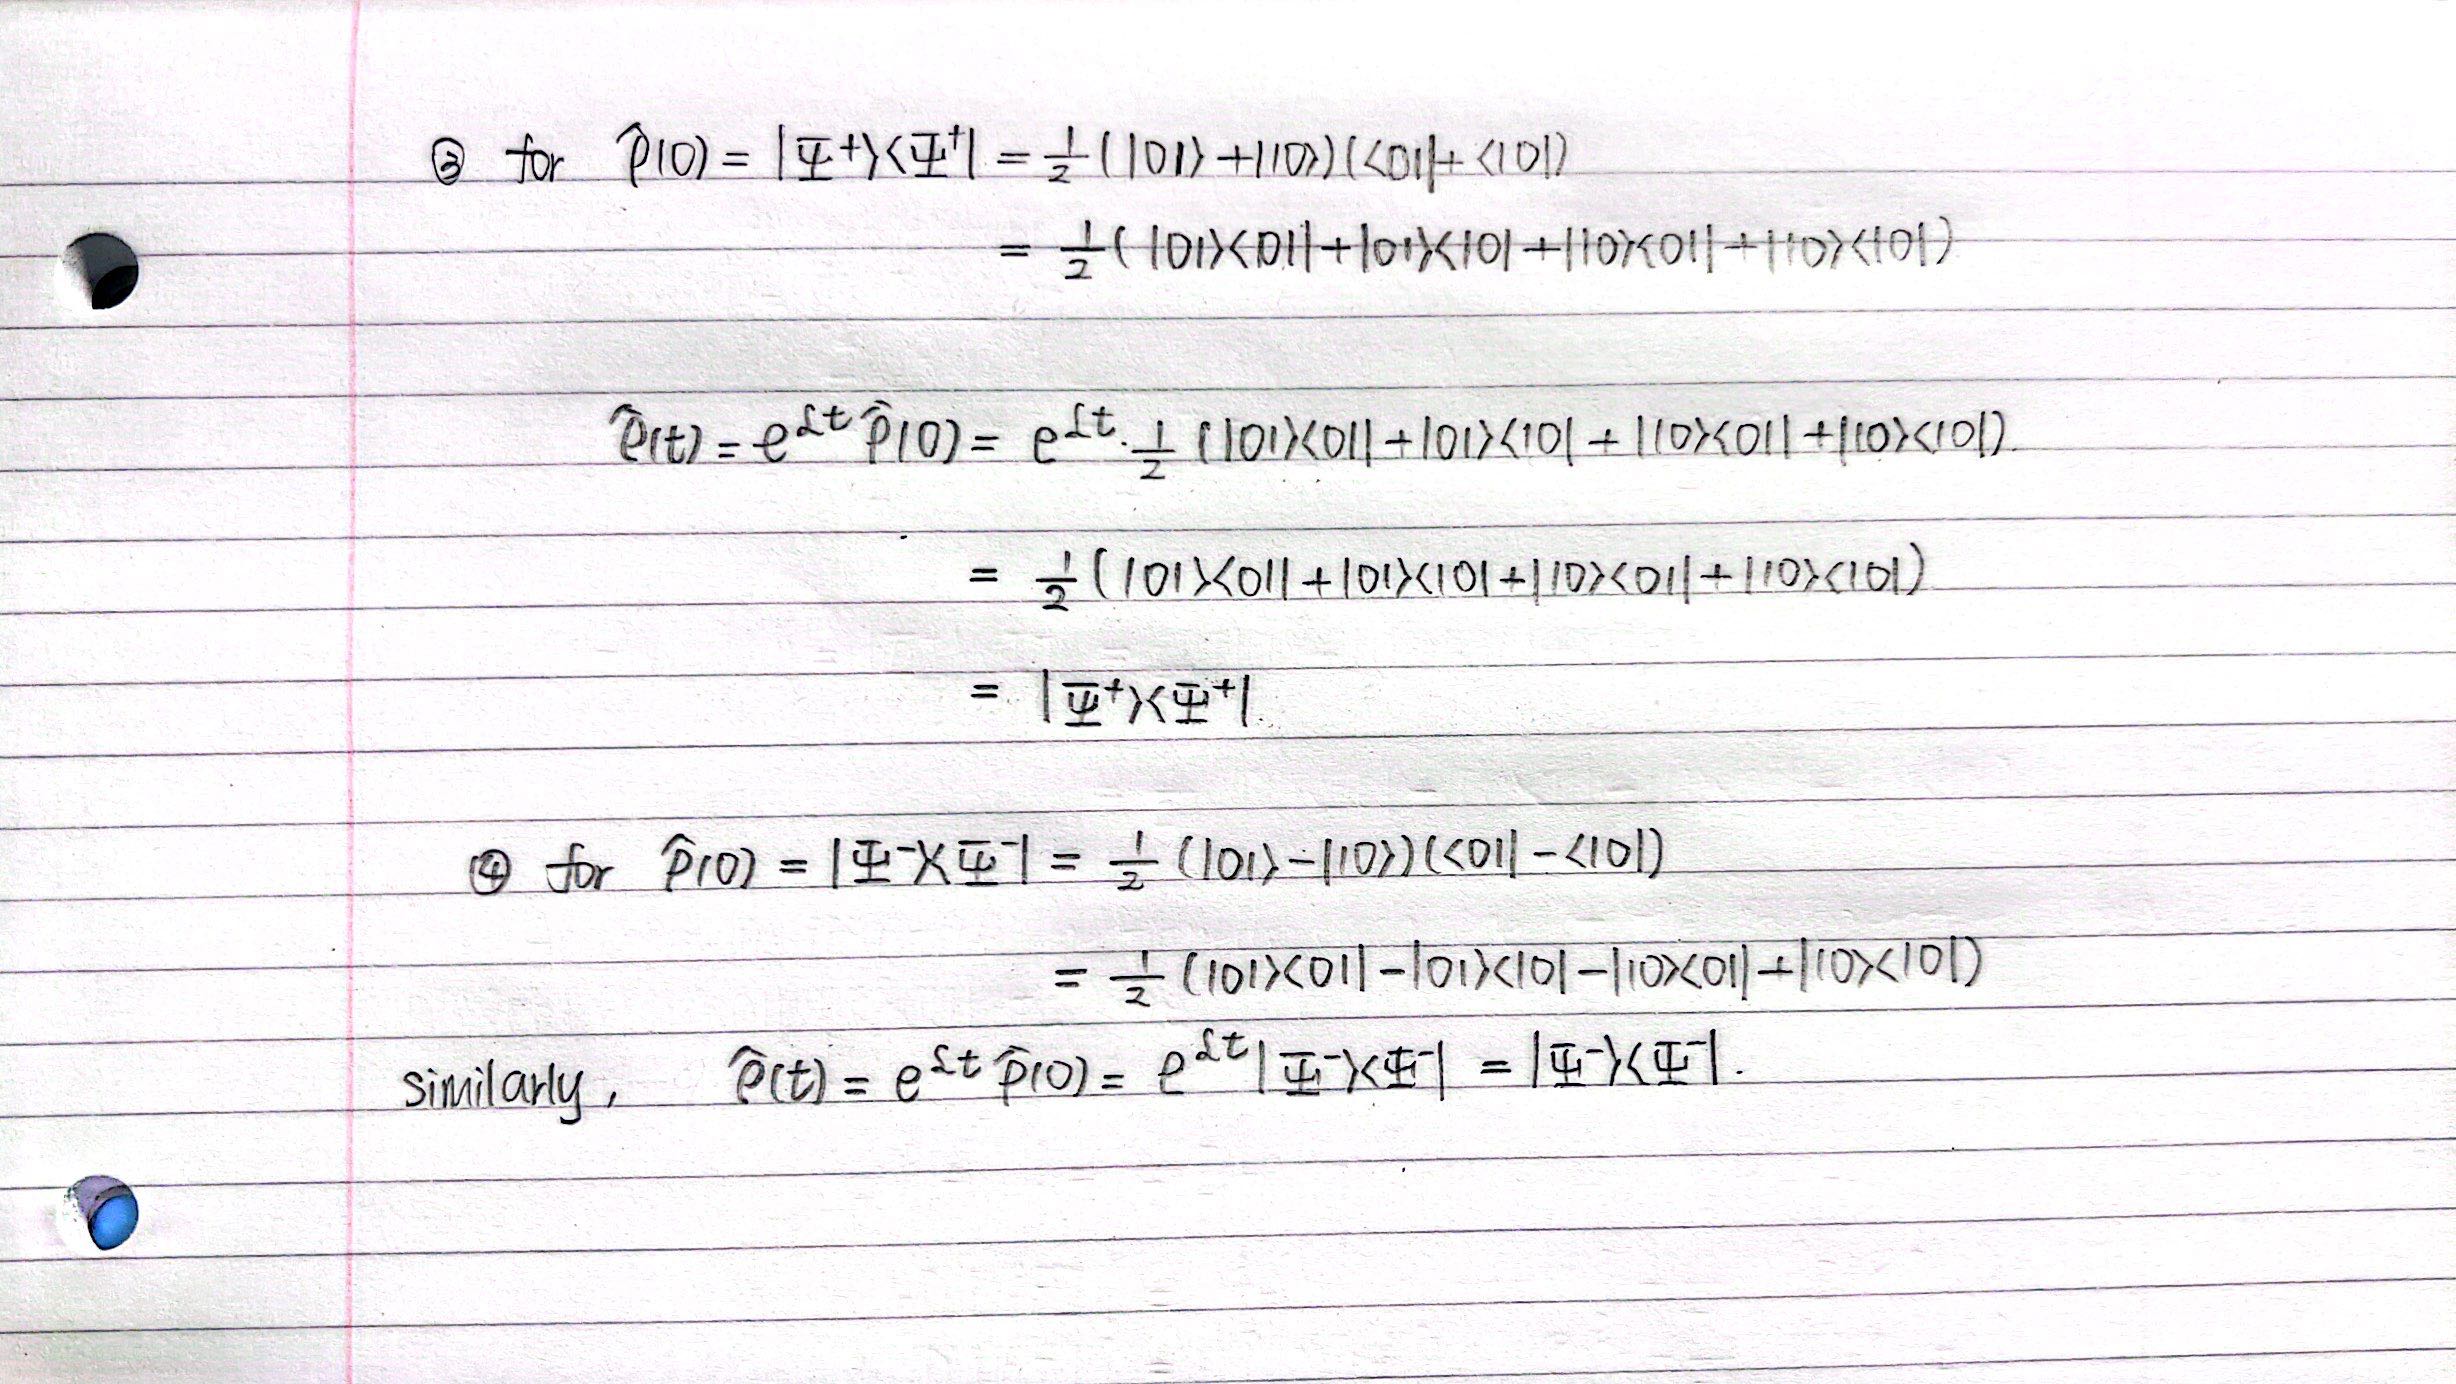 ③ for ρ̂(0) = |Ψ⁺⟩⟨Ψ⁺| = 1/2 (|01⟩ + |10⟩)(⟨01| + ⟨10|)
= 1/2 (|01⟩⟨01| + |01⟩⟨10| + |10⟩⟨01| + |10⟩⟨10|)
ρ̂(t) = e^{ℒt} ρ̂(0) = e^{ℒt} · 1/2 (|01⟩⟨01| + |01⟩⟨10| + |10⟩⟨01| + |10⟩⟨10|).
= 1/2 (|01⟩⟨01| + |01⟩⟨10| + |10⟩⟨01| + |10⟩⟨10|)
= |Ψ⁺⟩⟨Ψ⁺|.
④ for ρ̂(0) = |Ψ⁻⟩⟨Ψ⁻| = 1/2 (|01⟩ − |10⟩)(⟨01| − ⟨10|)
= 1/2 (|01⟩⟨01| − |01⟩⟨10| − |10⟩⟨01| + |10⟩⟨10|)
similarly, ρ̂(t) = e^{ℒt} ρ̂(0) = e^{ℒt} |Ψ⁻⟩⟨Ψ⁻| = |Ψ⁻⟩⟨Ψ⁻|.